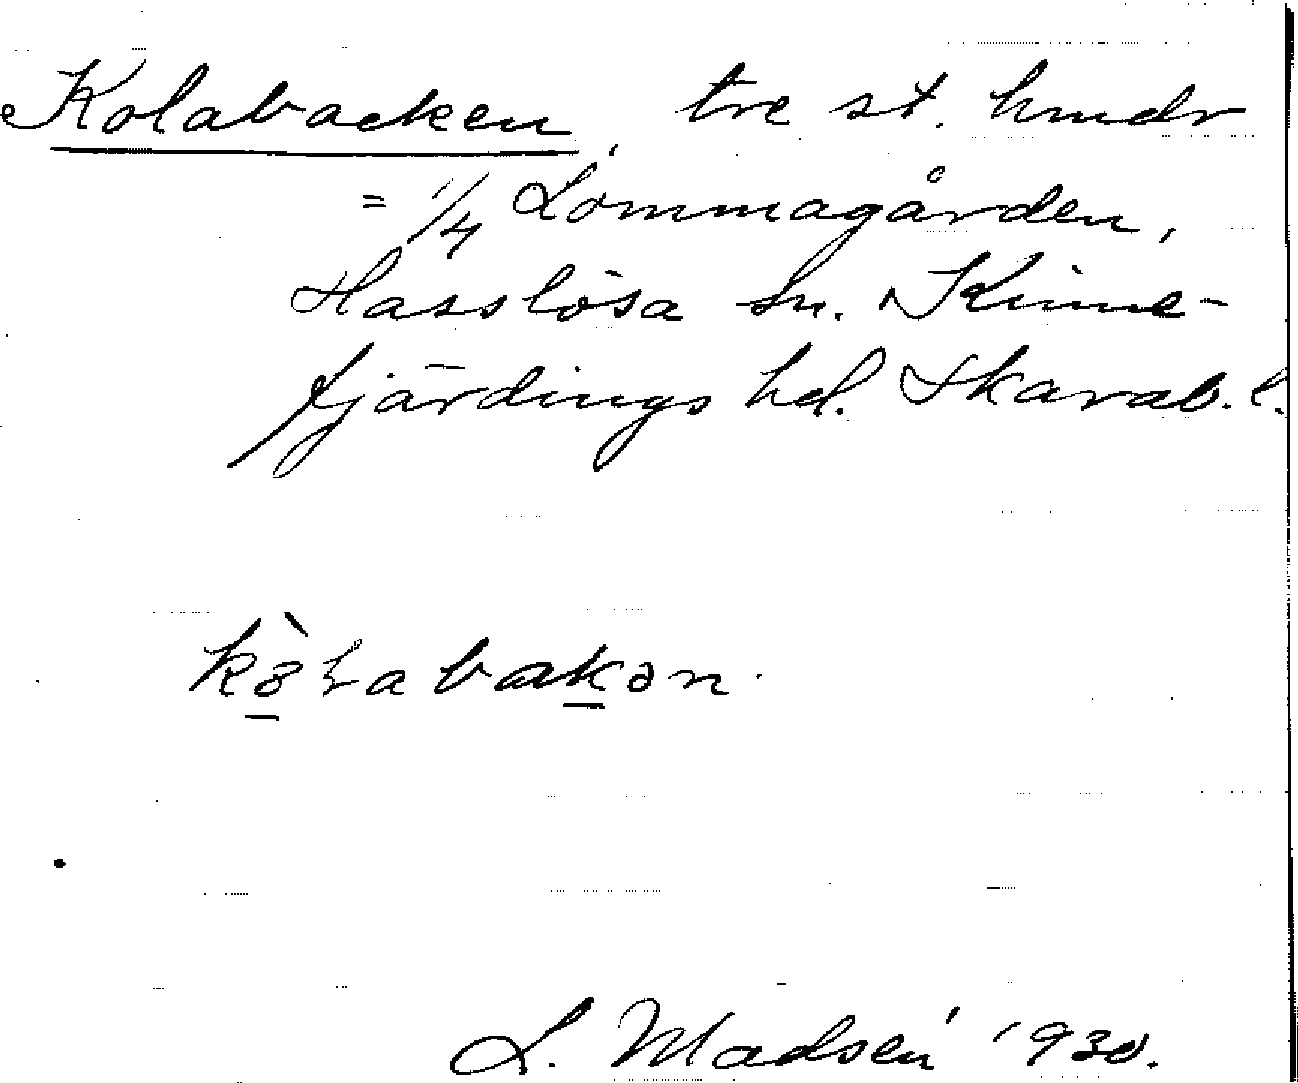 Kolabacken, tre st. hmdr
= 1/4 Lommagården,
Hasslösa sn. Kinne-
fjärdings hd. Skarab. l.
bakən
L. Madsén 1930.